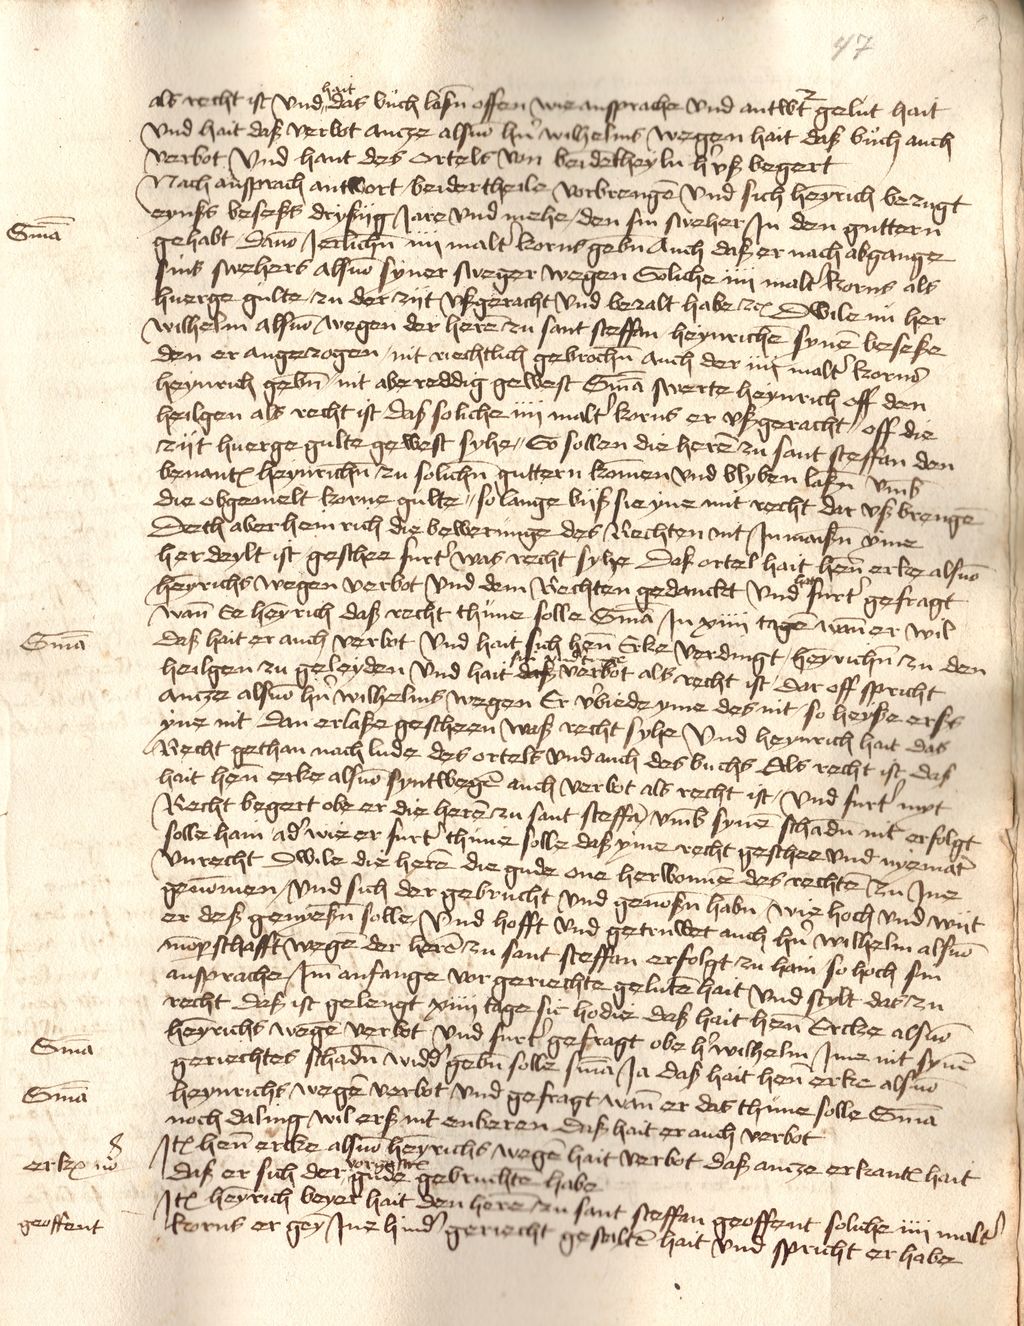 47
als recht ist Und hait das buch lasñ offen wie ansprache Und antwt gelut hait
Und hait daß verbot ancze alsuõ hñ wilhelms wegen hait daß buch auch
verbot Und hant des ortels von beidetheyln h'uß begert
Nach ansprach antwort beidertheile vorbrengẽ Und sich heyrich bezugt
eynßs beseßs dryssig Jare Und mehe den sin sweher Jn den guttern
Snia
gehabt dauõ Jerlichñ iiii malt' korns gebñ Auch daß er nach abgange
sins swehers alsuõ syner sweger wegen Soliche iiii malt' korns als
huerge gulte zu der zijt ußgeracht Und bezalt habe Dwile nü her
wilhelm alsuõ wegen der herẽ zu sant steffan heynrichẽ synẽ beseße
den er angezogen nit riechtlich gebrochñ Auch der iiii malt' korns
heynrich gebñ nit abereddig gewest Snia swerte heynrich off den
heilgen als recht ist daß soliche iiii malt' korns er ußgeracht off die
zijt huerge gulte gewest syhe So sollen die herẽ zu sant steffan den
benant heynrichñ zu solichñ guttern komen Und blyben lasñ umb
die obgemelt korne gulte so lange biß sie yne mit recht dar uß brengẽ
Deth aber heinrich die bewerunge des Rechten nit Jnmaißñ yme
herdeylt ist geschee furt' was recht syhe Daß ortel hait heñ erke alsuõ
heyrichs wegen verbot Und dem Rechten gedanckt Und hait furt' gefragt
wañ Ee heyrich daß recht thune solle Snia Jn xiiii tagẽ wañ er wil
Snia
daß hait er auch verbot Und hait sich heñ Erke verdingt heyrichñ zu den
heilgen zu geleyden Und hait daß verbot als recht ist dar off spricht
ancze alsuõ hñ wilhelms wegen Er v'biede yme des nit so heyße erß
yne nit dan erlaße gescheen waß recht syhe Und heynrich hait das
Recht gethan nach lude des ortels Und auch des buchs Als recht ist daß
hait heñ erke alsuõ syntwegẽ auch verbot als recht ist Und furt' myt
Recht begert obe er die herẽ zu sant steffã umb synẽ schadñ nit erfolgt
solle hain ad' wie er furt' thune solle daß yme recht geschee Und nyemãt
unrecht Dwile die herẽ die gude one herwonnẽ des rechtẽ zu Jne
genomen Und sich der gebrucht Und genoßñ habñ wie hoch Und wijt
er deß genyeßñ solle Und hofft Und getruwet auch hñ wilhelm alsuõ
momperschafft wegẽ der herẽ zu sant steffan erfolgt zu hain so hoch sin
ansprache Jm anfange vor geriechte gelutẽ hait Und stylt daß zu
recht daß ist gelengt xiiii tage sic hodie daß hait heñ Ercke alsuõ
heyrichs wegẽ verbot Und furt' gefragt obe h' wilhelm Jme nit synẽ
Snia
geriechtes schadñ widd' gebñ solle snia Ja daß hait heñ erke alsuõ
heynrichs wegẽ verbot Und gefragt wañ er das thune solle Snia
Snia
noch daling wil erß nit enberen daß hait er auch verbot
Jt heñ ercke alsuõ heyrichs wegẽ hait verbot daß ancze erkant hait
erk
daß er sich der gude gebruchtẽ habe
Jt heyrich beyer hait den herẽ zu sant steffan geoffent soliche iiii malt'
geoffent
korns er gey Jne hind' geriecht gestaltẽ hait Und spricht er habe